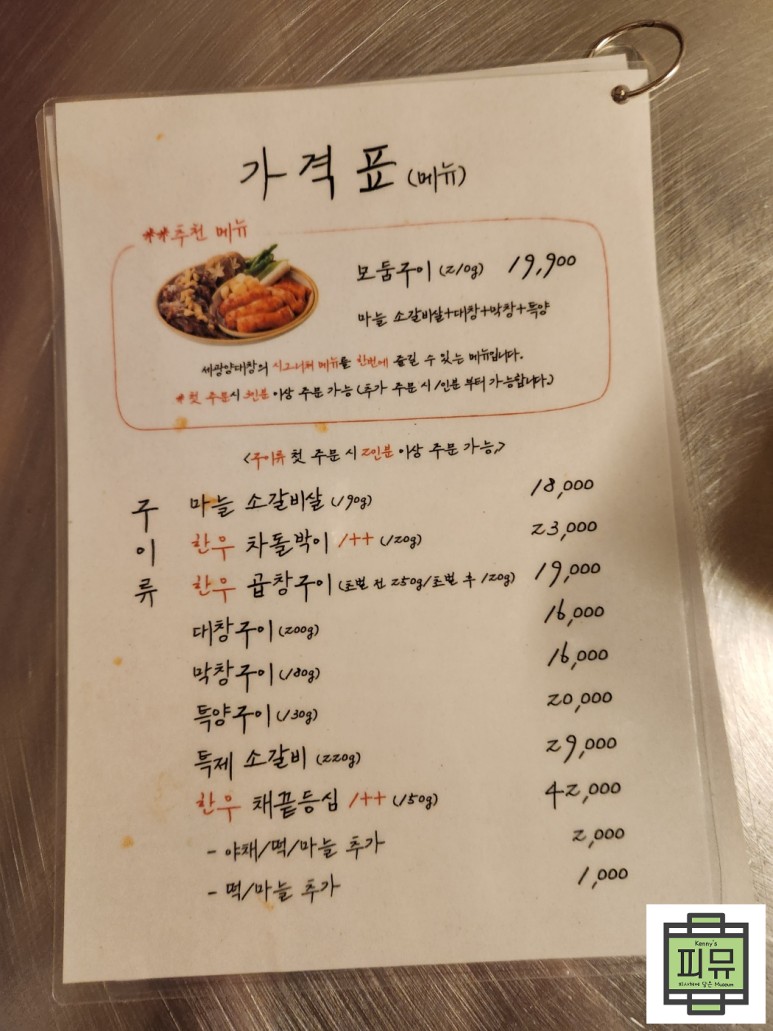 가격표 (메뉴)
**추천 메뉴
모둠구이 (210g) 19,900
마늘 소갈비살+대창+막창+특양
세광양대창의 시그니처 메뉴를 한번에 즐길 수 있는 메뉴입니다.
*첫 주문시 3인분 이상 주문 가능 (추가 주문 시 1인분 부터 가능합니다.)
<구이류 첫 주문 시 2인분 이상 주문 가능,>
구이류
마늘 소갈비살 (190g) 18,000
한우 차돌박이 1++ (120g) 23,000
한우 곱창구이 (초벌 전 250g/초벌 후 120g) 19,000
대창구이 (200g) 16,000
막창구이 (180g) 16,000
특양구이 (130g) 20,000
특제 소갈비 (220g) 29,000
한우 채끝등심 1++ (150g) 42,000
- 야채/떡/마늘 추가 2,000
- 떡/마늘 추가 1,000
Kenny's
피뮤
피사체에 담은 Museum